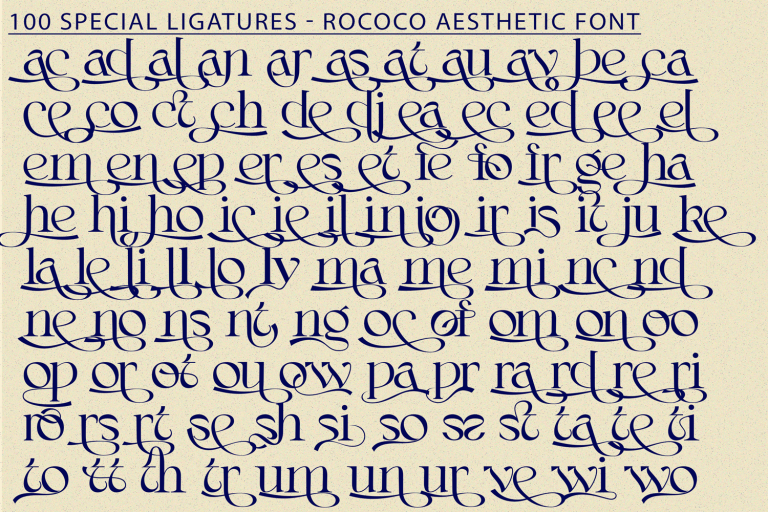 100 SPECIAL LIGATURES - ROCOCO AESTHETIC FONT
ac ad al an ar as at au av be ca
ce co ct ch de di ea ec ed ee el
em en ep er es et fe fo fr ge ha
he hi ho ic ie il in io ir is it ju ke
la le li ll lo lv ma me mi nc nd
ne no ns nt ng oc of om on oo
op or ot ou ow pa pr ra rd re ri
ro rs rt se sh si so ss st ta te ti
to tt th tr um un ur ve wi wo